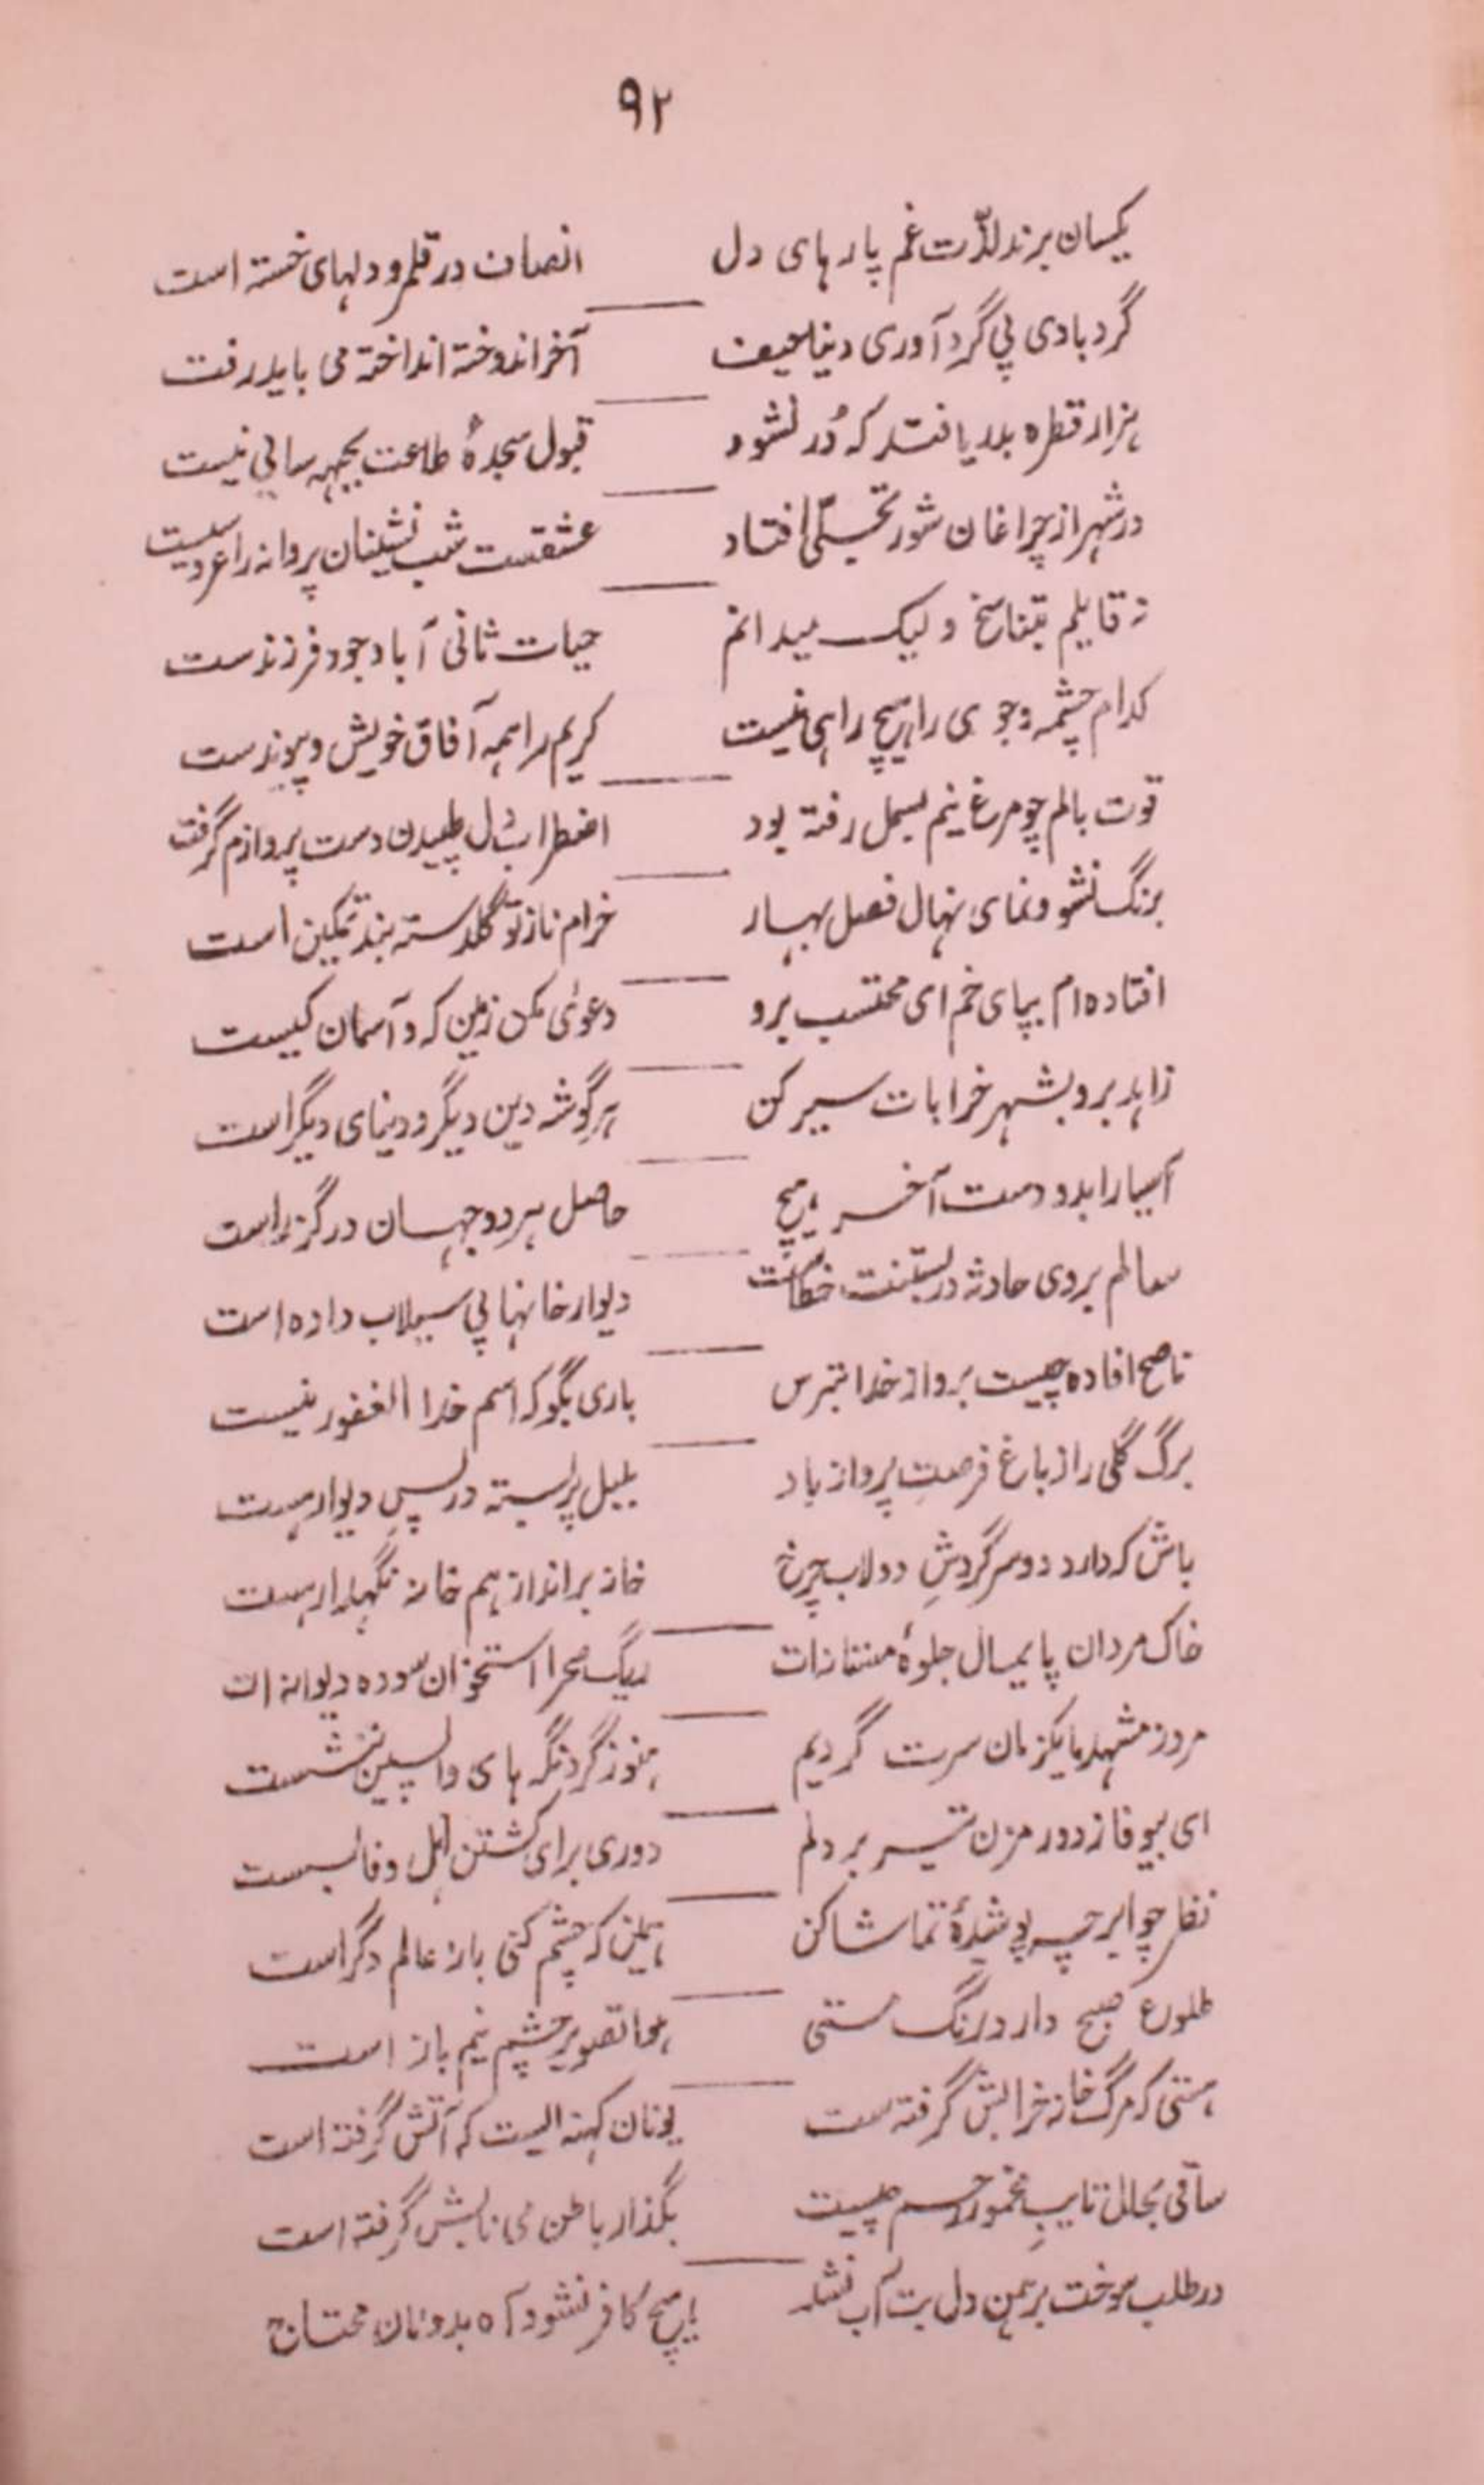 ۹۲
یکسان برند لذّت غم پارهای دل    انصاف در قلمرو دلهای خسته است
گردبادی پی گرد آوری دنیا حیف    آخر اندوخته انداخته می باید رفت
هزار قطره بدریا فتد که دُر نشود    قبول سجدهٔ طاعت بجبهه سائی نیست
در شهر از چراغان شور تجلّی افتاد    عشقست شب نشینان پروانه را عروسیست
نه قایلم بتناسخ ولیک میدانم    حیات ثانی آبا وجود فرزندست
کدام چشمه وجوی را هیچ راهی نیست    کریم را همه آفاق خویش و پیوندست
قوت بالم چو مرغ نیم بسمل رفته بود    اضطراب دل طپیدن دست پروازم گرفت
برنگ نشو و نمای نهال فصل بهار    خرام ناز تو گلدسته بند تمکین است
افتاده ام بپای خم ای محتسب برو    دعوئی مکن زمین که و آسمان کیست
زاهد برو بشهر خرابات سیر کن    هر گوشه دین دیگر و دنیای دیگر است
آسیا را بدو دست آخر هیچ    حاصل هر دو جهان در گزر است
سالم بروی حادثه در بستنت خطاست    دیوار خانها پی سیلاب داده است
ناصح افاده چیست برو از خدا بترس    باری بگو که اسم خدا الغفور نیست
برگ گلی را ز باغ فرصتِ پرواز باد    بلبل پر بسته در پسِ دیوار هست
باش که دارد دو سر گردشِ دولاب چرخ    خانه برانداز هم خانه نگهدار هست
خاک مردان پایمال جلوهٔ مستانه ات    ریگ صحرا استخوان سوده دیوانه ات
مرو ز مشهد ما یکزمان سرت گردیم    هنوز گرد نگه های واپسین ننشست
ای بیوفا ز دور مزن تیر بر دلم    دوری برای کشتن اهل وفا بسست
نظر چو ابر چه پوشیدهٔ تماشا کن    همین که چشم کنی باز عالم دگر است
طلوع صبح دارد رنگ مستی    هوا تصویر چشم نیم باز است
هستی که مرگ خانه خرابش گرفته ست    یونان کهنه ایست که آتش گرفته است
ساقی بحال تایب مخمور رحم چیست    بگذار باطن می نابش گرفته است
در طلب سوخت برهمن دل بت آب نشد    هیچ کافر نشود آه بدونان محتاج